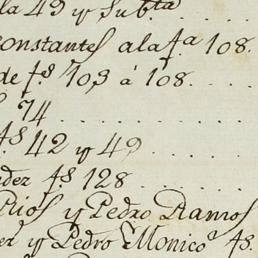 la 49 y Subta
constantes ala fa 108.
de fs 103 á 108.
74
fs 42 y 49
dez fs 128
Rios y Pedro Ramos
y Pedro Monico fs.